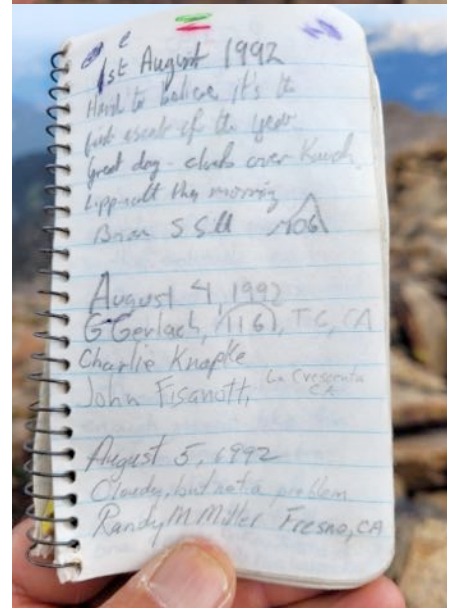 1st August 1992
Hard to believe it's the
first ascent of the year.
Great day - clouds over Kaweah.
Lippincott this morning
Brian S Sill 106
August 4, 1992
G Gerlach, 116, TC, CA
Charlie Knapke
John Fisanotti, La Crescenta CA
August 5, 1992
Cloudy, but not a problem
Randy M Miller Fresno, CA